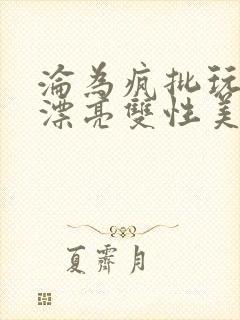 淪為瘋批玩
漂亮雙性美
夏霽月